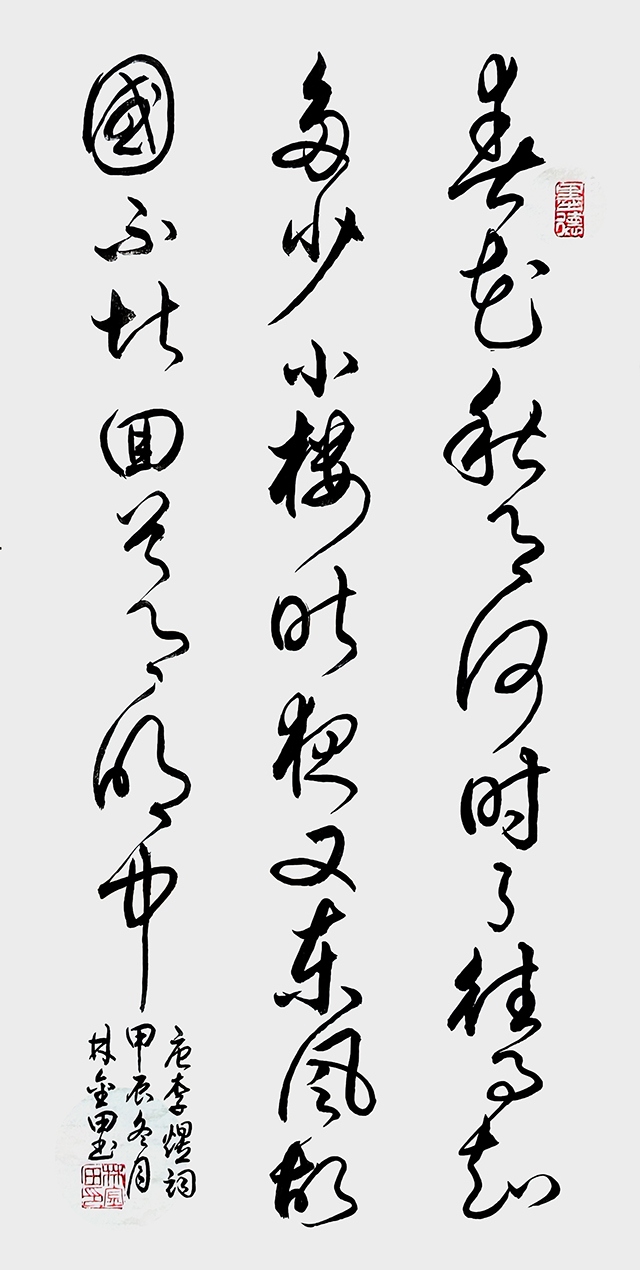 春花秋月何时了往事知
多少小楼昨夜又东风故
國不堪回首月明中
唐李煜詞
甲辰冬月
林金田书
林金田印